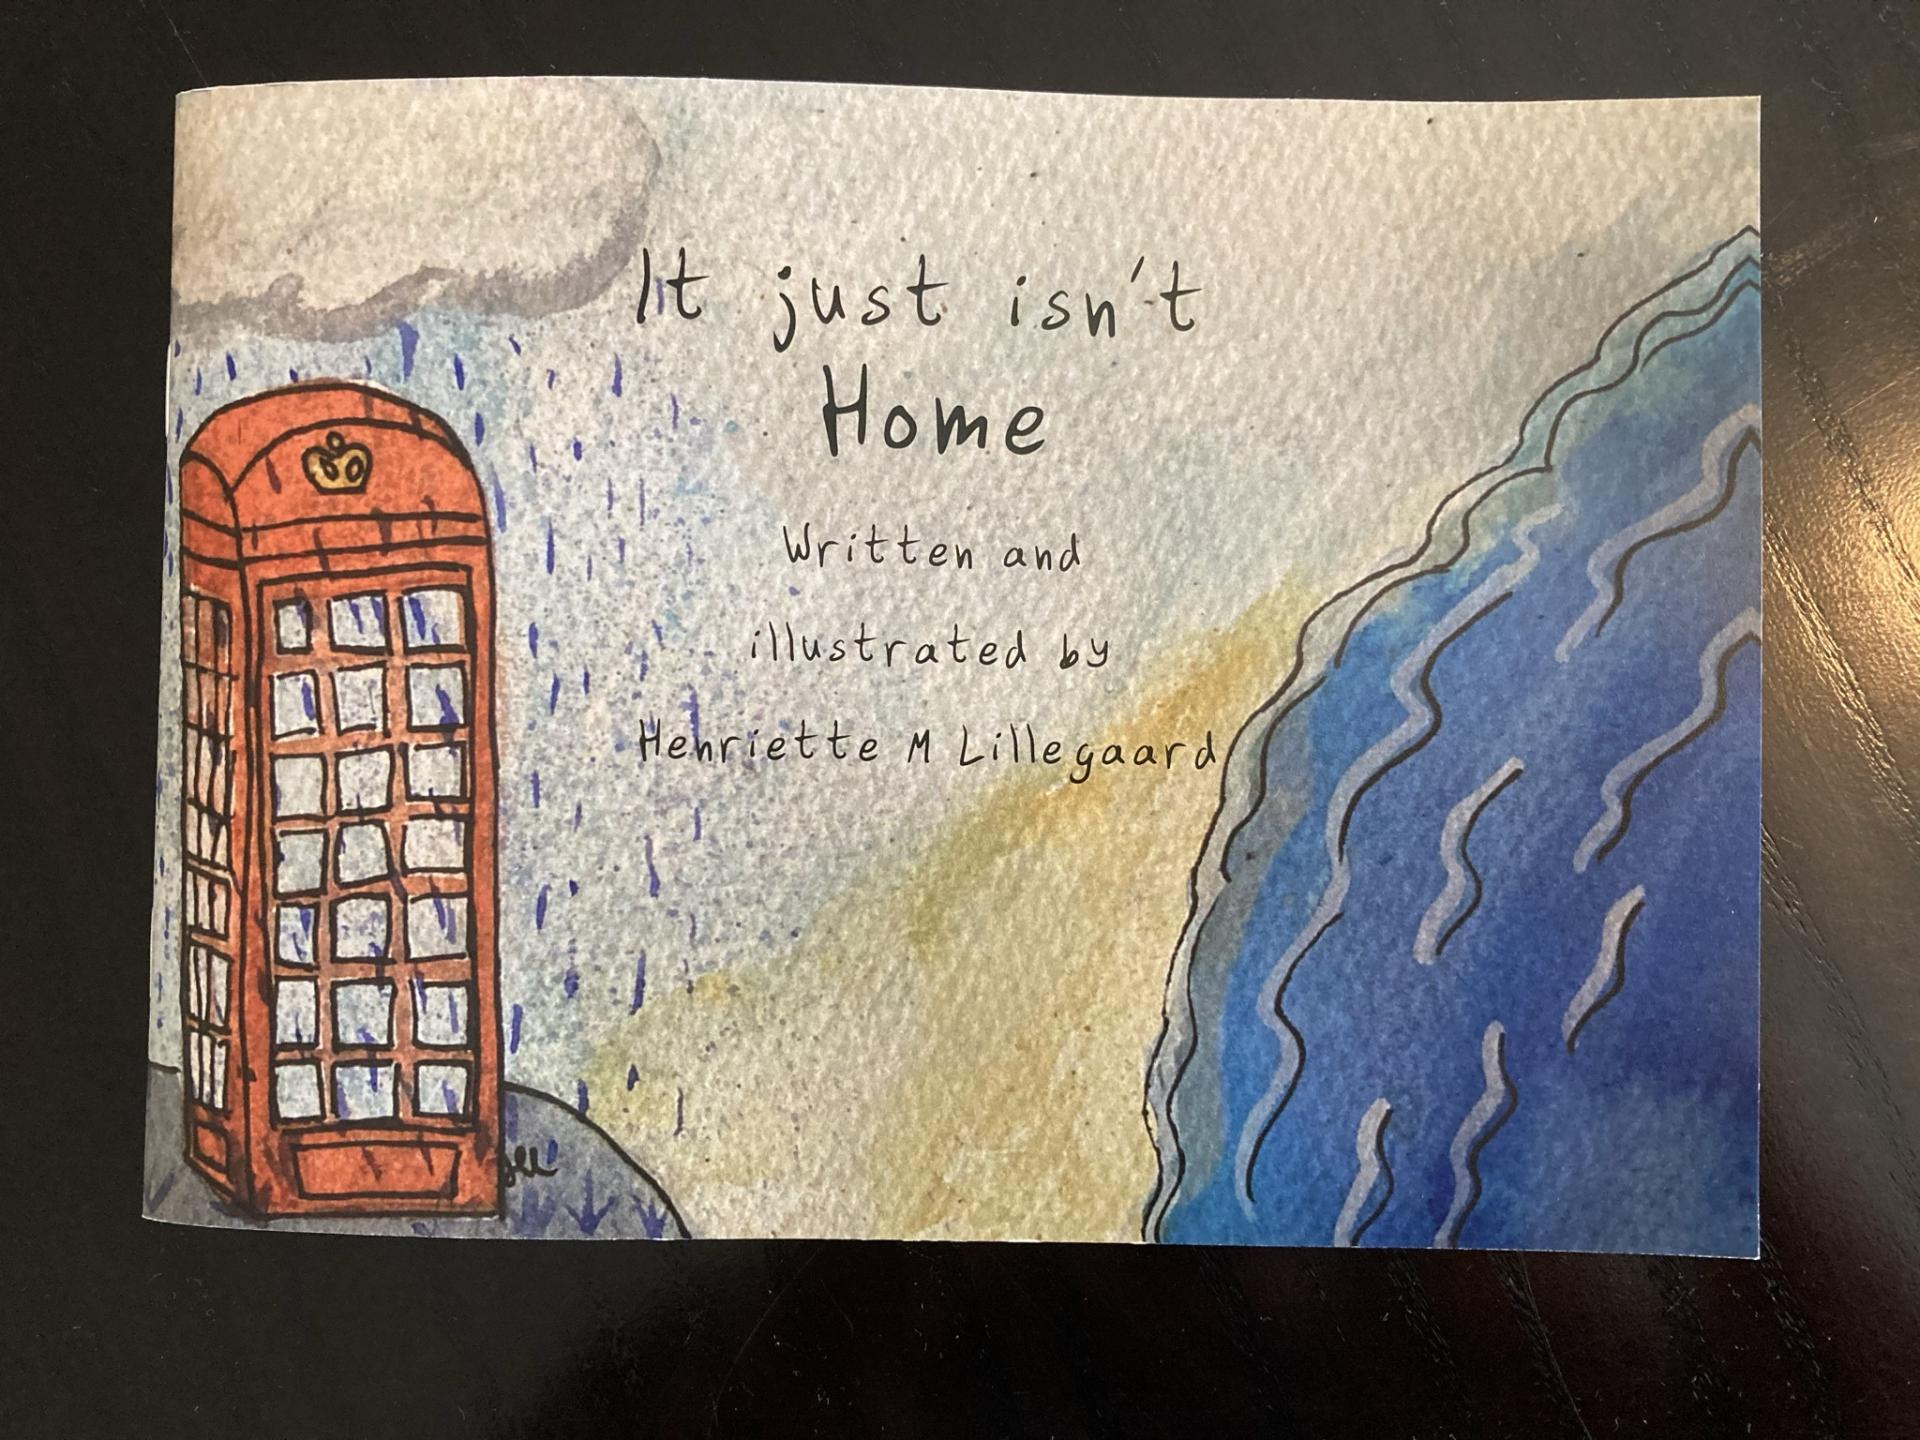 It just isn't
Home
Written and
illustrated by
Henriette M Lillegaard